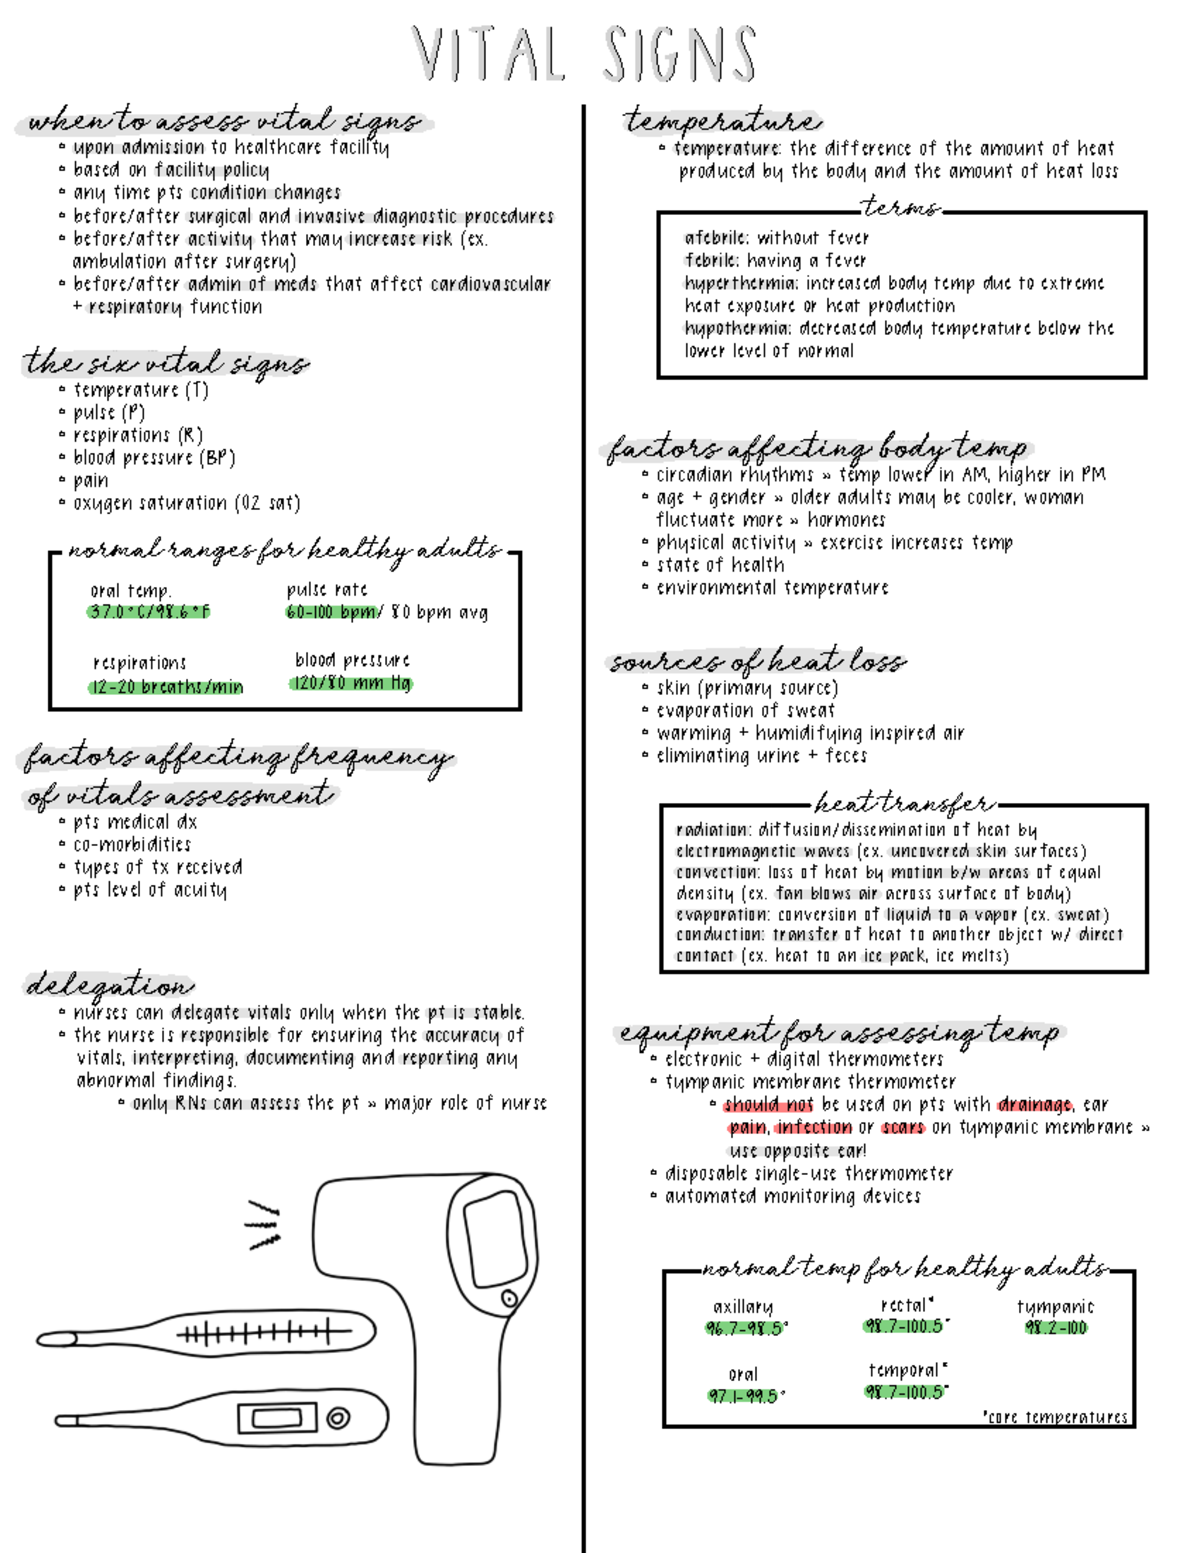 VITAL SIGNS
when to assess vital signs
▫ upon admission to healthcare facility
▫ based on facility policy
▫ any time pts condition changes
▫ before/after surgical and invasive diagnostic procedures
▫ before/after activity that may increase risk (ex.
ambulation after surgery)
▫ before/after admin of meds that affect cardiovascular
+ respiratory function
the six vital signs
▫ temperature (T)
▫ pulse (P)
▫ respirations (R)
▫ blood pressure (BP)
▫ pain
▫ oxygen saturation (O2 sat)
normal ranges for healthy adults
oral temp.
37.0°C/98.6°F
pulse rate
60-100 bpm/ 80 bpm avg
respirations
12-20 breaths/min
blood pressure
120/80 mm Hg
factors affecting frequency
of vitals assessment
▫ pts medical dx
▫ co-morbidities
▫ types of tx received
▫ pts level of acuity
delegation
▫ nurses can delegate vitals only when the pt is stable.
▫ the nurse is responsible for ensuring the accuracy of
vitals, interpreting, documenting and reporting any
abnormal findings.
▫ only RNs can assess the pt » major role of nurse
temperature
▫ temperature: the difference of the amount of heat
produced by the body and the amount of heat loss
terms
afebrile: without fever
febrile: having a fever
hyperthermia: increased body temp due to extreme
heat exposure or heat production
hypothermia: decreased body temperature below the
lower level of normal
factors affecting body temp
▫ circadian rhythms » temp lower in AM, higher in PM
▫ age + gender » older adults may be cooler, woman
fluctuate more » hormones
▫ physical activity » exercise increases temp
▫ state of health
▫ environmental temperature
sources of heat loss
▫ skin (primary source)
▫ evaporation of sweat
▫ warming + humidifying inspired air
▫ eliminating urine + feces
heat transfer
radiation: diffusion/dissemination of heat by
electromagnetic waves (ex. uncovered skin surfaces)
convection: loss of heat by motion b/w areas of equal
density (ex. fan blows air across surface of body)
evaporation: conversion of liquid to a vapor (ex. sweat)
conduction: transfer of heat to another object w/ direct
contact (ex. heat to an ice pack, ice melts)
equipment for assessing temp
▫ electronic + digital thermometers
▫ tympanic membrane thermometer
▫ should not be used on pts with drainage, ear
pain, infection or scars on tympanic membrane »
use opposite ear!
▫ disposable single-use thermometer
▫ automated monitoring devices
normal temp for healthy adults
axillary
96.7-98.5°
rectal*
98.7-100.5°
tympanic
98.2-100
oral
97.1-99.5°
temporal*
98.7-100.5°
*core temperatures